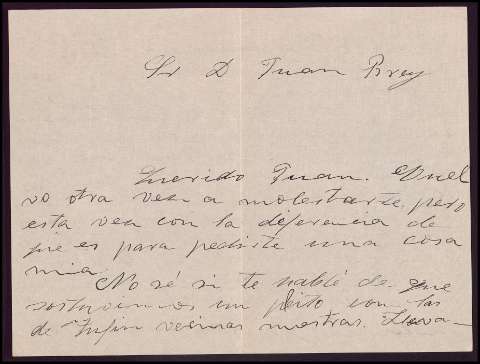 Sr D Juan Brey
Querido Juan. Vuel
vo otra vez a molestarte, pero
esta vez con la diferencia de
que es para pedirte una cosa
mia.
No sé si te hablé de que
sostuvimos un pleito con las
de vecinas nuestras. Lleva-